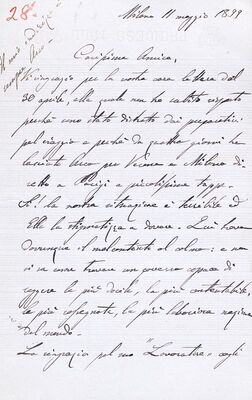 28
Milano 11 maggio 1899
Carissimo Amico,
Vi ringrazio per la vostra cara lettera del
30 aprile, alla quale non ho subito risposto
perchè sono stato distratto dai preparativi
pel viaggio e perchè da quattro giorni ho
lasciato Arco per Verona e Milano di-
retto a Parigi a piccolissime tappe.
Sì! la nostra situazione è terribile ed
Ella la stigmatizza a dovere. Qui trovo
dovunque il malcontento al colmo: e non
si sa come trovare un governo capace di
reggere la più docile, la più contentabile,
la più rassegnata, la più laboriosa nazione
del mondo.
La ringrazio pel suo "Lavoratore" cogli